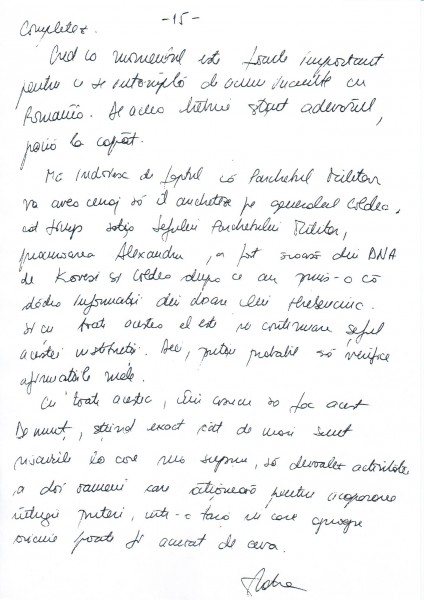 - 15 -
Completez.
Cred că momentul este foarte important
pentru ce se întâmplă de acum înainte cu
România. De aceea trebuie știut adevărul,
până la capăt.
Mă îndoiesc de faptul că Parchetul Militar
va avea curaj să îl ancheteze pe generalul Coldea,
cât timp soția Șefului Parchetului Militar,
procuroarea Alexandru, a fost scoasă din DNA
de Kovesi și Coldea după ce au prins-o că
dădea informații din dosare lui
Și cu toate acestea el este în continuare șeful
acestei instituții. Deci, puțin probabil să verifice
afirmațiile mele.
Cu toate acestea, îmi asum să fac acest
Denunț, știind exact cât de mari sunt
riscurile la care mă supun, să devoalez activitatea
a doi oameni care acționează pentru acapararea
întregii puteri, într-o țară în care aproape
oricine poate fi acuzat de ceva.